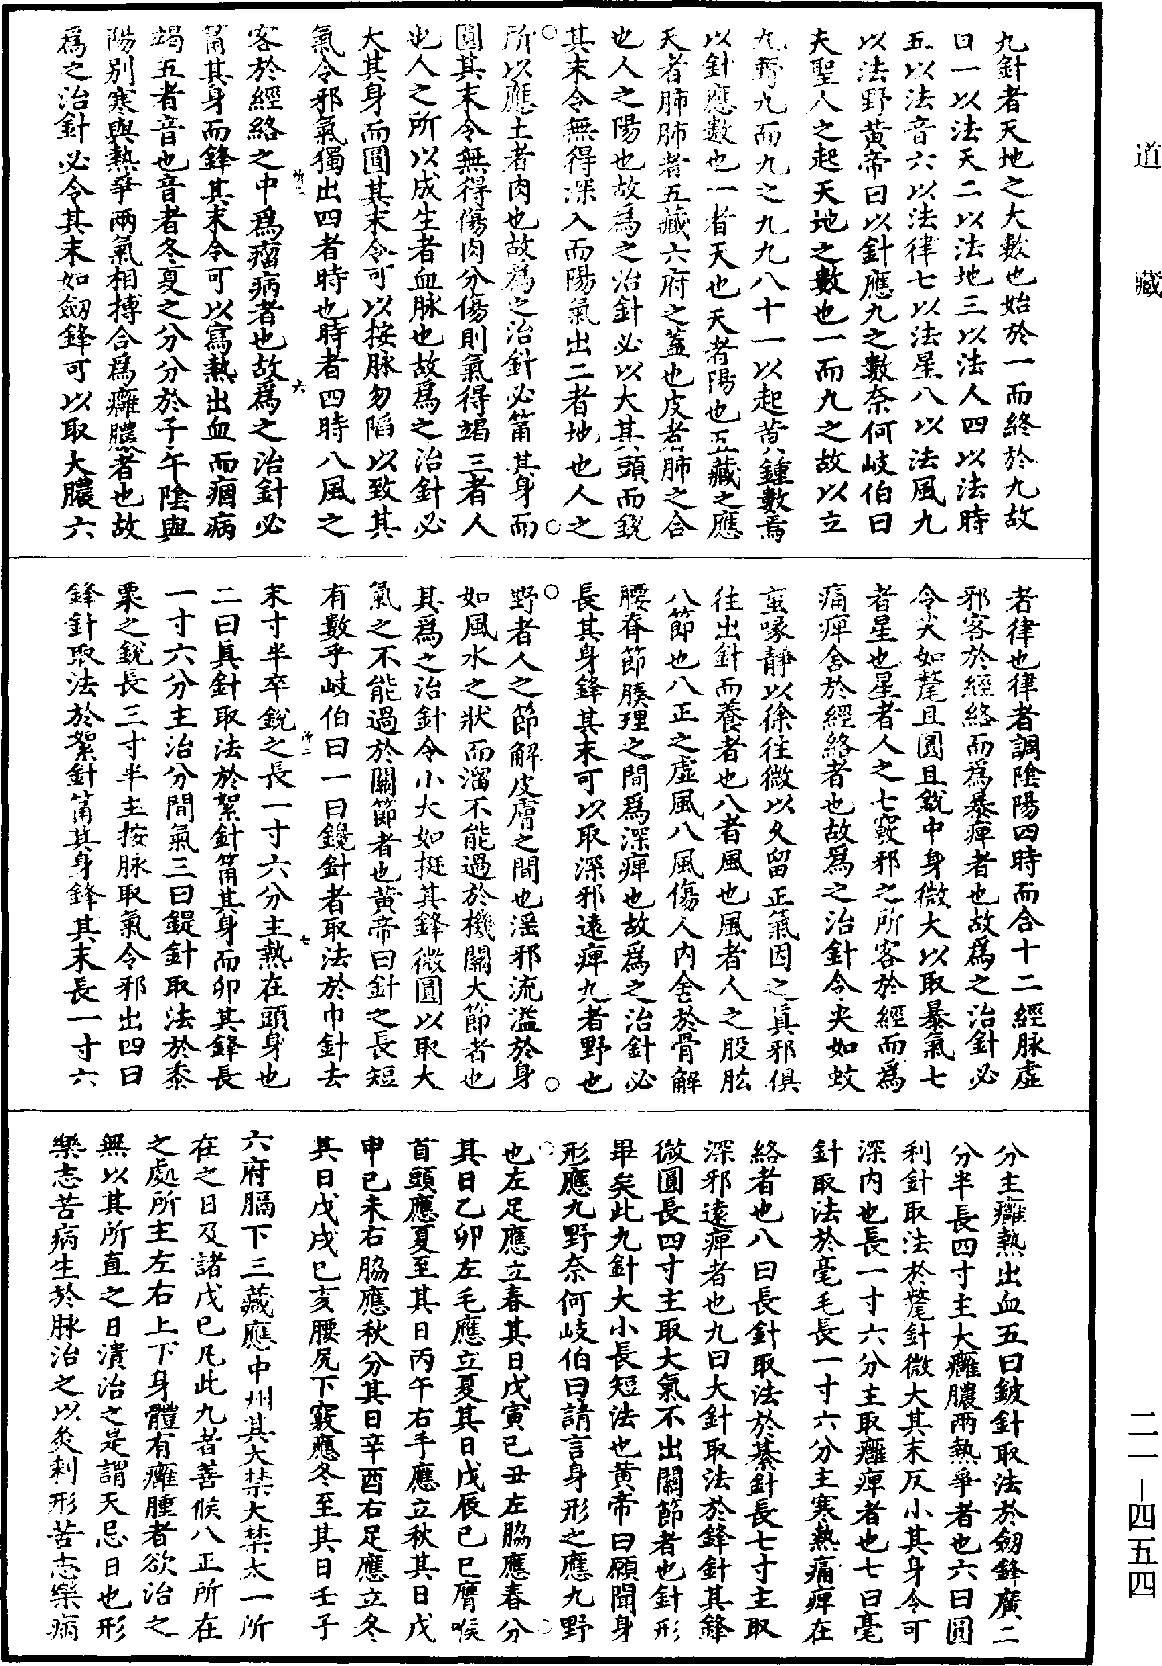 道藏
九針者天地之大數也始於一而終於九故
曰一以法天二以法地三以法人四以法時
五以法音六以法律七以法星八以法風九
以法野黃帝曰以針應九之數奈何岐伯曰
夫聖人之起天地之數也一而九之故以立
九野九而九之九九八十一以起黃鍾數焉
以針應數也一者天也天者陽也五藏之應
天者肺肺者五藏六府之蓋也皮者肺之合
也人之陽也故為之治針必以大其頭而銳
其末令無得深入而陽氣出二者地也人之
所以應土者肉也故為之治針必筩其身而
圓其末令無得傷肉分傷則氣得竭三者人
也人之所以成生者血脉也故為之治針必
大其身而圓其末令可以按脉勿陷以致其
氣令邪氣獨出四者時也時者四時八風之
客於經絡之中為瘤病者也故為之治針必
筩其身而鋒其末令可以寫熱出血而痼病
竭五者音也音者冬夏之分分於子午陰與
陽別寒與熱爭兩氣相搏合為癰膿者也故
為之治針必令其末如劒鋒可以取大膿六
者律也律者調陰陽四時而合十二經脉虛
邪客於經絡而為暴痺者也故為之治針必
令尖如氂且圓且銳中身微大以取暴氣七
者星也星者人之七竅邪之所客於經而為
痛痺舍於經絡者也故為之治針令尖如蚊
䖟喙靜以徐往微以久留正氣因之真邪俱
往出針而養者也八者風也風者人之股肱
八節也八正之虛風八風傷人內舍於骨解
腰脊節腠理之間為深痺也故為之治針必
長其身鋒其末可以取深邪遠痺九者野也
野者人之節解皮膚之間也淫邪流溢於身
如風水之狀而溜不能過於機關大節者也
其為之治針令小大如挺其鋒微圓以取大
氣之不能過於關節者也黃帝曰針之長短
有數乎岐伯曰一曰鑱針者取法於巾針去
末寸半卒銳之長一寸六分主熱在頭身也
二曰員針取法於絮針筩其身而卵其鋒長
一寸六分主治分間氣三曰鍉針取法於黍
粟之銳長三寸半主按脉取氣令邪出四曰
鋒針取法於絮針筩其身鋒其末長一寸六
分主癰熱出血五曰鈹針取法於劒鋒廣二
分半長四寸主大癰膿兩熱爭者也六曰圓
利針取法於氂針微大其末反小其身令可
深內也長一寸六分主取癰痺者也七曰毫
針取法於毫毛長一寸六分主寒熱痛痺在
絡者也八曰長針取法於綦針長七寸主取
深邪遠痺者也九曰大針取法於鋒針其鋒
微圓長四寸主取大氣不出關節者也針形
畢矣此九針大小長短法也黃帝曰願聞身
形應九野奈何岐伯曰請言身形之應九野
也左足應立春其日戊寅己丑左脇應春分
其日乙卯左毛應立夏其日戊辰己巳膺喉
首頭應夏至其日丙午右手應立秋其日戊
申己未右脇應秋分其日辛酉右足應立冬
其日戊戌己亥腰尻下竅應冬至其日壬子
六府膈下三藏應中州其大禁大禁太一所
在之日及諸戊己凡此九者善候八正所在
之處所主左右上下身體有癰腫者欲治之
無以其所直之日潰治之是謂天忌日也形
樂志苦病生於脉治之以灸刺形苦志樂病
二一-四五四